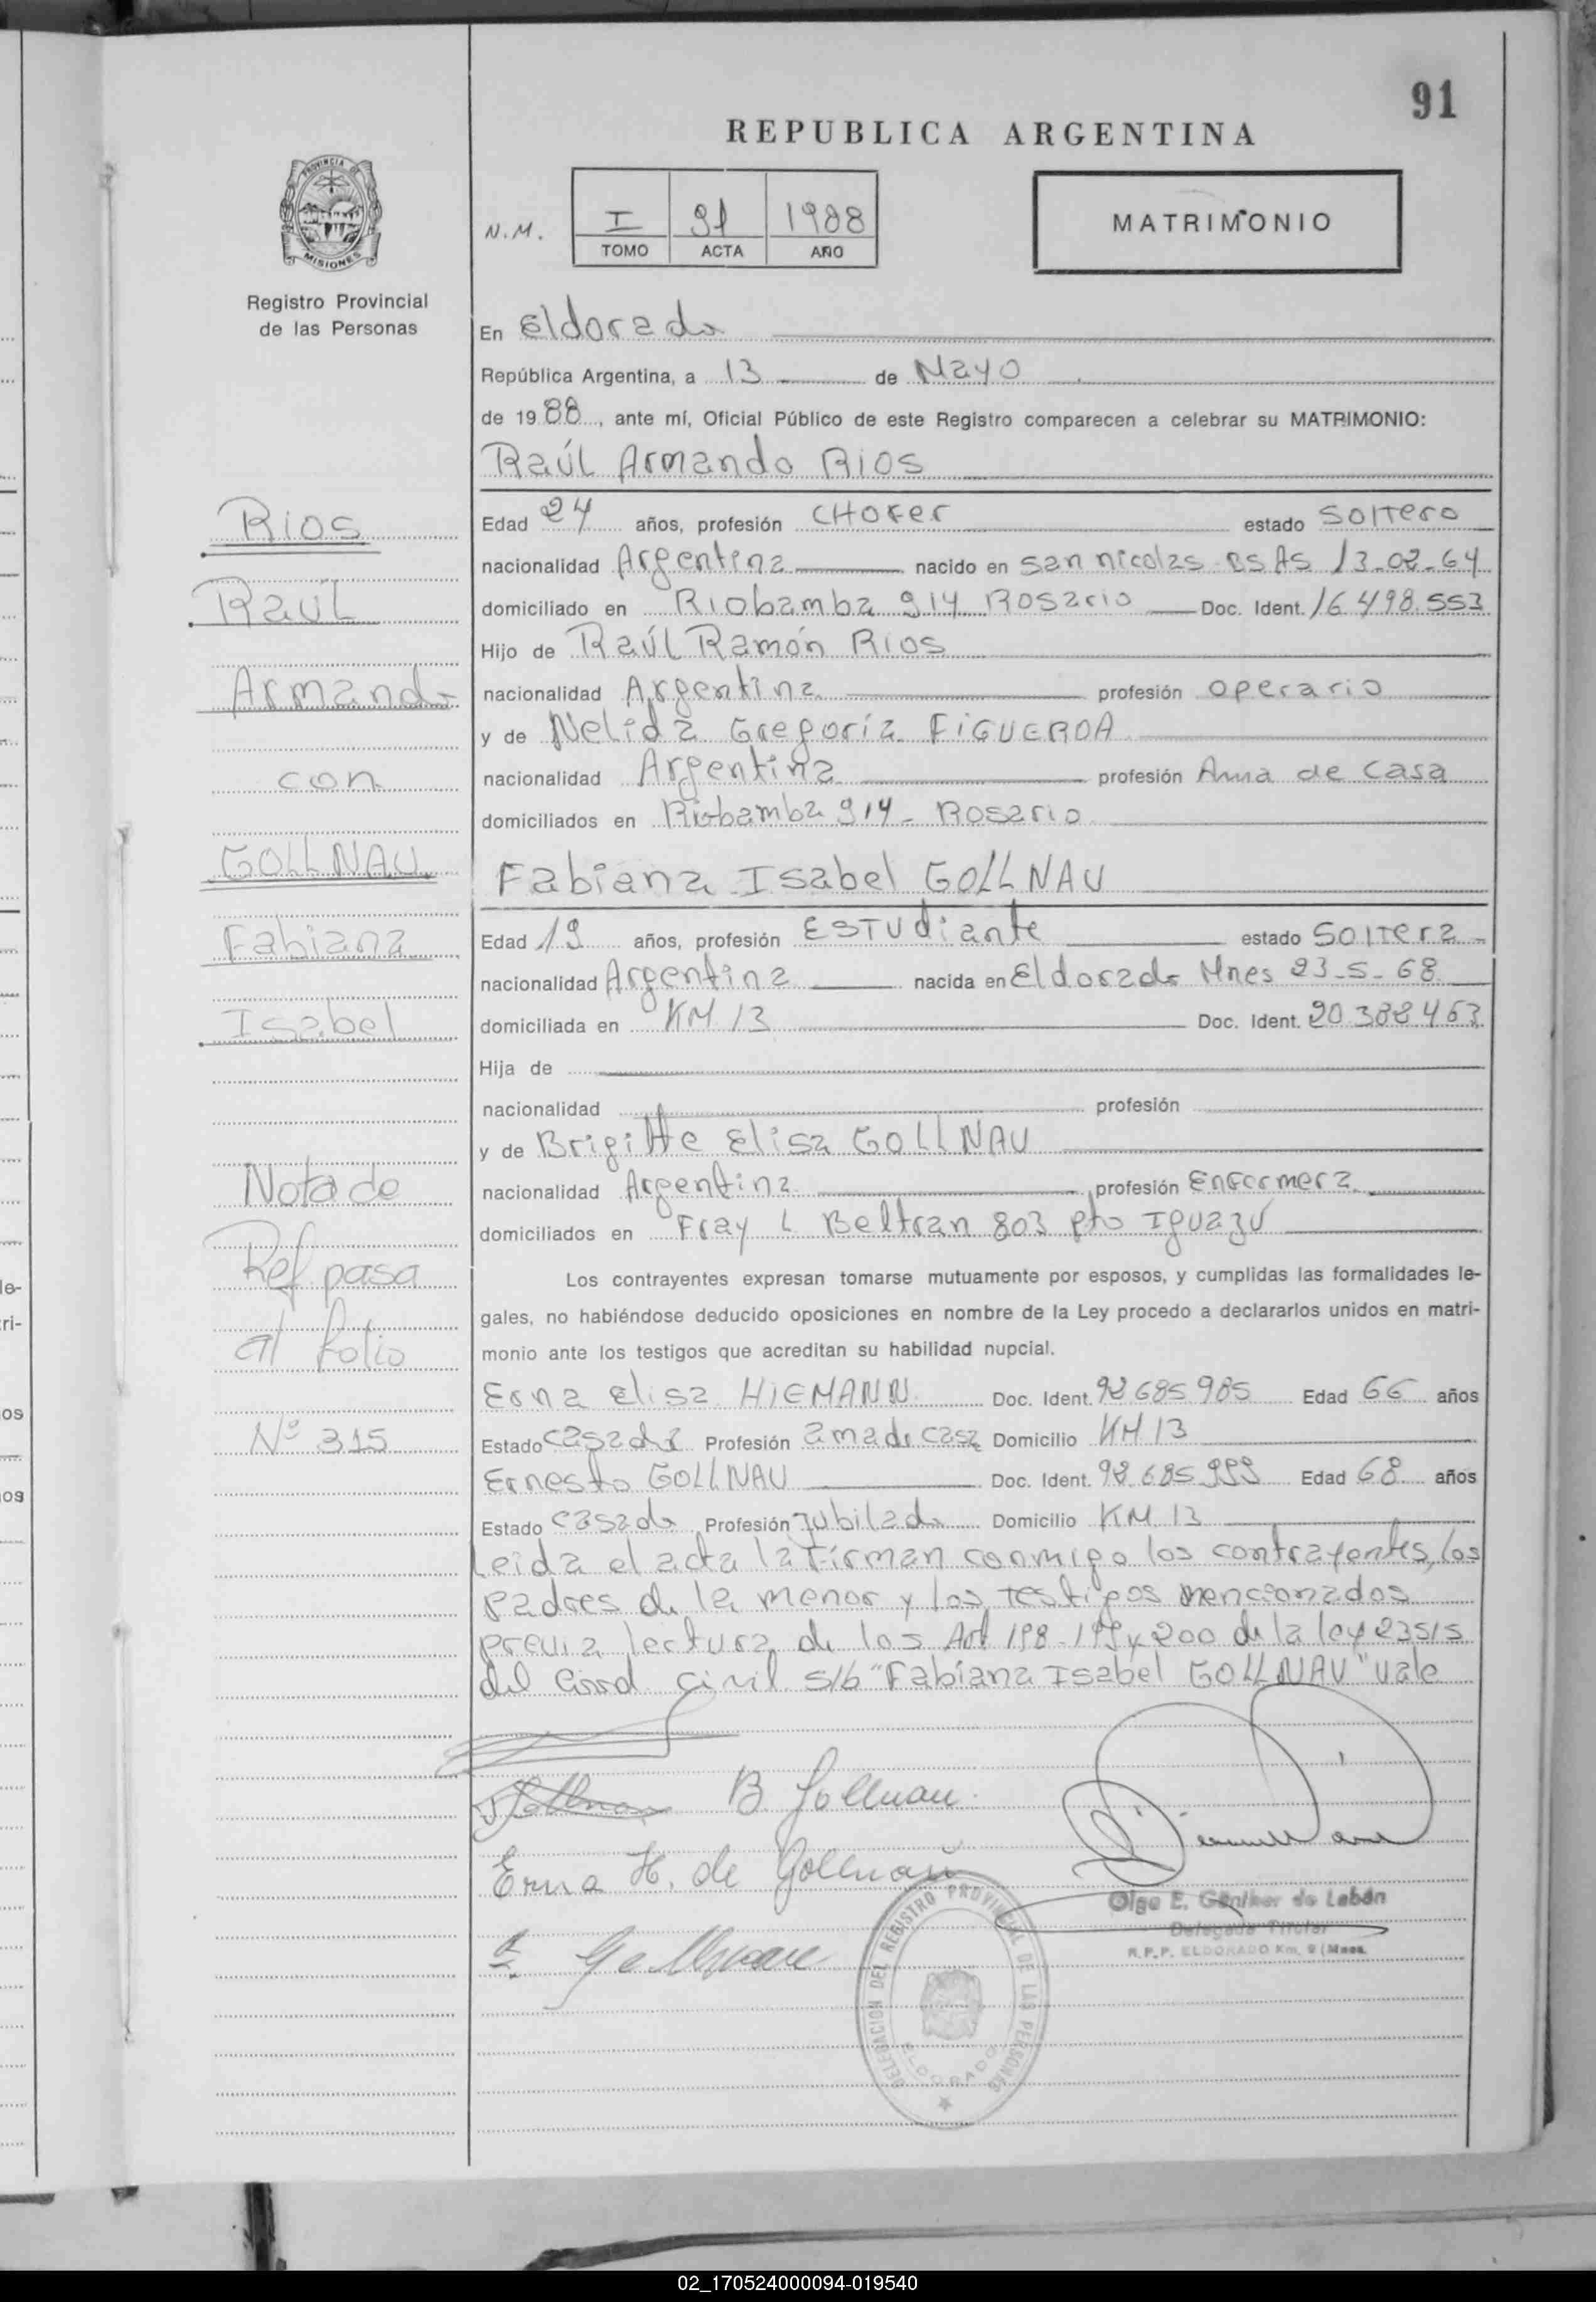 91
REPUBLICA ARGENTINA
PROVINCIA DE
MISIONES
Registro Provincial
de las Personas
N.M.
I 91 1988
TOMO ACTA AÑO
MATRIMONIO
En Eldorado
República Argentina, a 13 de Mayo
de 1988, ante mí, Oficial Público de este Registro comparecen a celebrar su MATRIMONIO:
Raúl Armando RIOS
Edad 24 años, profesión CHOFER estado SOLTERO
nacionalidad Argentina nacido en San nicolas BS AS 13-02-64
domiciliado en Riobamba 914 Rosario Doc. Ident. 16.498.553
Hijo de Raúl Ramón RIOS
nacionalidad Argentina profesión operario
y de Nelida Gregoria FIGUEROA
nacionalidad Argentina profesión Ama de casa
domiciliados en Riobamba 914 - Rosario
Fabiana Isabel GOLLNAU
Edad 19 años, profesión ESTUdiante estado SOLTERA
nacionalidad Argentina nacida en Eldorado Mnes 23-5-68
domiciliada en KM 13 Doc. Ident. 20.388.463
Hija de
nacionalidad profesión
y de Brigitte Elisa GOLLNAU
nacionalidad Argentina profesión Enfermera
domiciliados en Fray L Beltran 803 pto Iguazú
Los contrayentes expresan tomarse mutuamente por esposos, y cumplidas las formalidades le-
gales, no habiéndose deducido oposiciones en nombre de la Ley procedo a declararlos unidos en matri-
monio ante los testigos que acreditan su habilidad nupcial.
Erna Elisa HIEMANN Doc. Ident. 92685985 Edad 66 años
Estado casada Profesión ama de casa Domicilio KM 13
Ernesto GOLLNAU Doc. Ident. 92.685.999 Edad 68 años
Estado casado Profesión Jubilado Domicilio KM 13
Leida el acta la Firman conmigo los contrayentes, los
padres de la menor y los testigos mencionados
previa lectura de los Art 198-199 y 200 de la ley 23515
del Civil s/b "Fabiana Isabel GOLLNAU" vale
B. Gollnau
Erna H. de Gollnau
Olga E. Günther de Labán
Delegada Titular
R.P.P. ELDORADO Km. 9 (Mnes.
DELEGACION DEL REGISTRO PROVINCIAL DE LAS PERSONAS
ELDORADO
Rios
Raúl
Armando
con
GOLLNAU
Fabiana
Isabel
Nota de
Ref pasa
al folio
Nº 315
le-
ri-
os
os
02_170524000094-019540